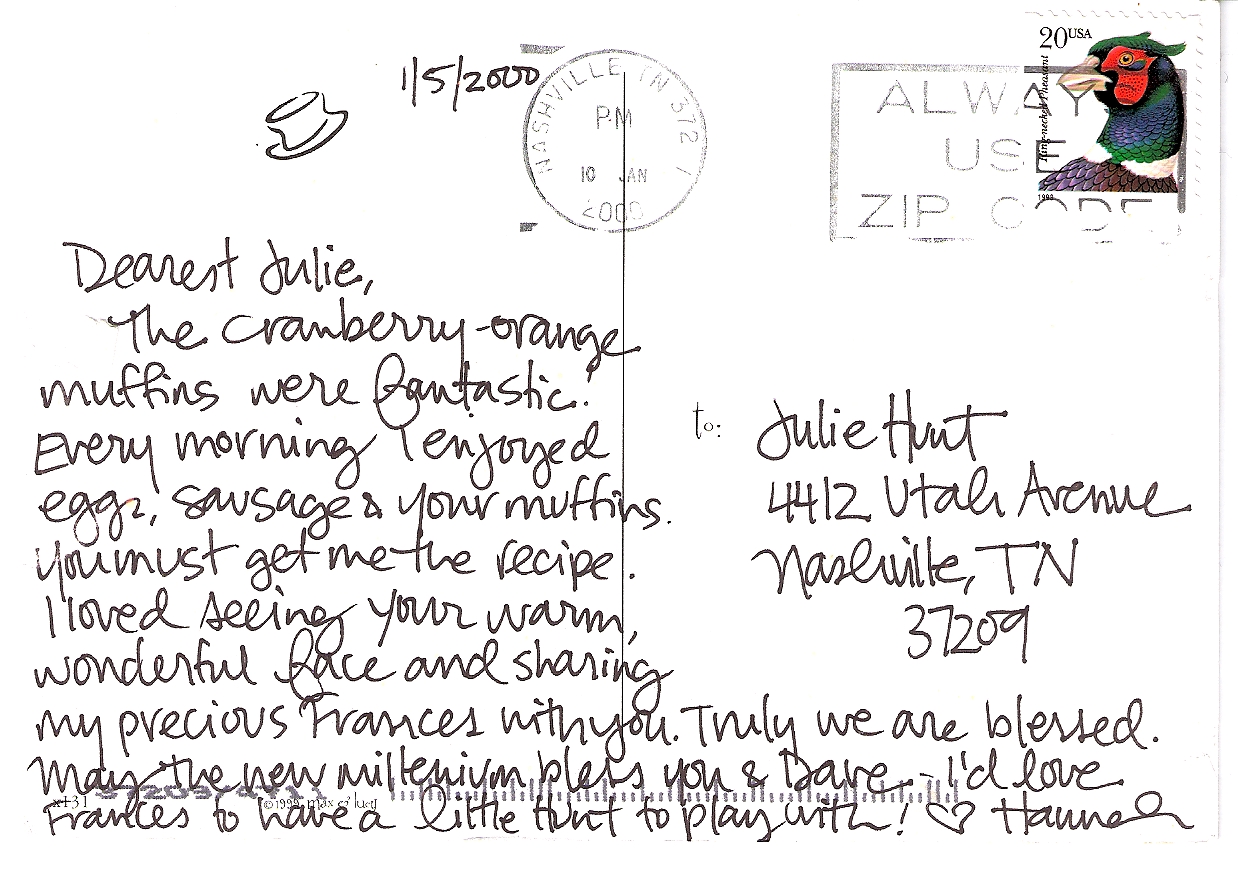 1/5/2000
NASHVILLE TN 372
PM
10 JAN
2000
ALWAY
USE
ZIP CODE
20USA
Ring-necked Pheasant
1998
Dearest Julie,
The cranberry-orange
muffins were fantastic!
Every morning I enjoyed
eggs, sausage & your muffins.
You must get me the recipe.
I loved seeing your warm,
wonderful face and sharing
my precious Frances with you. Truly we are blessed.
May the new millenium bless you & Dave - I'd love
Frances to have a little Hunt to play with! ♡ Hannah
to:
Julie Hunt
4412 Utah Avenue
Nashville, TN
37209
x131
©1999 max & lucy